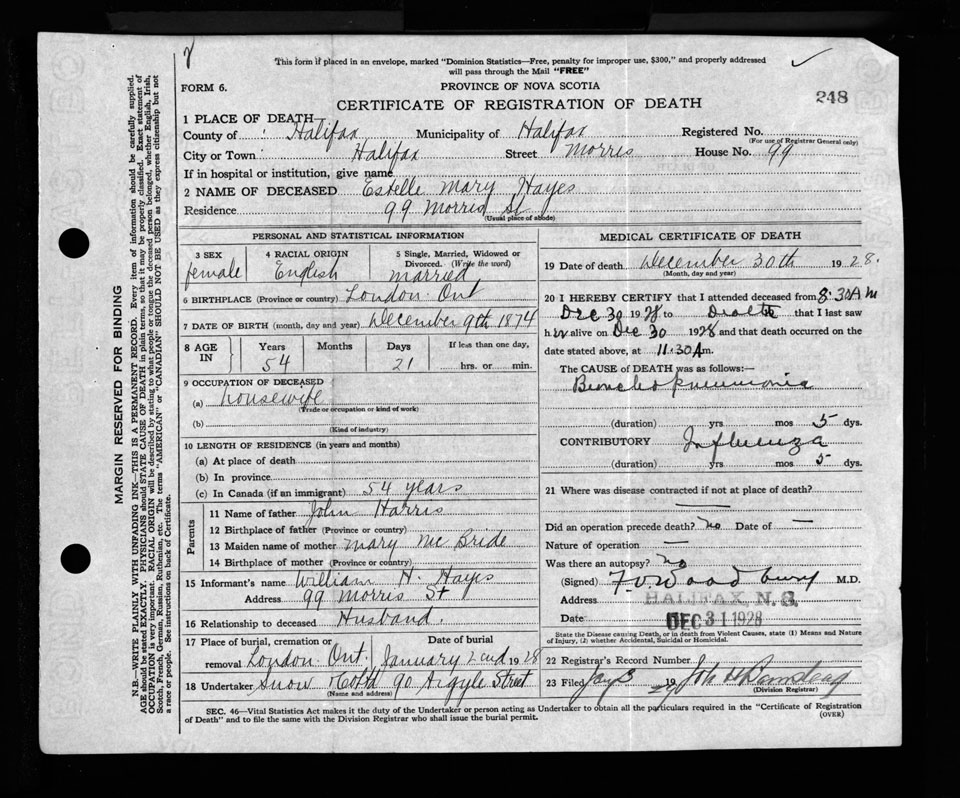 This form if placed in an envelope, marked "Dominion Statistics—Free, penalty for improper use, $300," and properly addressed
will pass through the Mail "FREE"
FORM 6.
PROVINCE OF NOVA SCOTIA
248
CERTIFICATE OF REGISTRATION OF DEATH
1 PLACE OF DEATH
County of Halifax Municipality of Halifax Registered No.
(For use of Registrar General only)
City or Town Halifax Street Morris House No. 99
If in hospital or institution, give name
2 NAME OF DECEASED Estelle Mary Hayes
Residence 99 Morris St
(Usual place of abode)
PERSONAL AND STATISTICAL INFORMATION
3 SEX 4 RACIAL ORIGIN 5 Single, Married, Widowed or
Divorced. (Write the word)
female English married
6 BIRTHPLACE (Province or country) London Ont
7 DATE OF BIRTH (month, day and year) December 9th 1874
8 AGE IN Years Months Days If less than one day,
54 21 hrs. or min.
9 OCCUPATION OF DECEASED
(a) housewife
(Trade or occupation or kind of work)
(b)
(Kind of industry)
10 LENGTH OF RESIDENCE (in years and months)
(a) At place of death
(b) In province
(c) In Canada (if an immigrant) 54 years
Parents
11 Name of father John Harris
12 Birthplace of father (Province or country)
13 Maiden name of mother Mary McBride
14 Birthplace of mother (Province or country)
15 Informant's name William H. Hayes
Address 99 Morris St
16 Relationship to deceased Husband.
17 Place of burial, cremation or Date of burial
removal London Ont. January 2 1928
18 Undertaker Snow 90 Argyle Street
(Name and address)
MEDICAL CERTIFICATE OF DEATH
19 Date of death December 30th 1928.
(Month, day and year)
20 I HEREBY CERTIFY that I attended deceased from 8.30 AM
Dec 30 1928 to Death that I last saw
her alive on Dec 30 1928 and that death occurred on the
date stated above, at 11.30 A m.
The CAUSE OF DEATH was as follows:—
Broncho pneumonia
(duration) yrs mos 5 dys.
CONTRIBUTORY Influenza
(duration) yrs mos 5 dys.
21 Where was disease contracted if not at place of death?
—
Did an operation precede death? No Date of —
Nature of operation —
Was there an autopsy? No
(Signed) F. V. Woodbury M.D.
Address HALIFAX, N. S.
Date DEC 31 1928
State the Disease causing Death, or in death from Violent Causes, state (1) Means and Nature
of Injury, (2) whether Accidental, Suicidal or Homicidal.
22 Registrar's Record Number
23 Filed Jany 3 19 29
(Division Registrar)
SEC. 46—Vital Statistics Act makes it the duty of the Undertaker or person acting as Undertaker to obtain all the particulars required in the "Certificate of Registration
of Death" and to file the same with the Division Registrar who shall issue the burial permit.
(OVER)
MARGIN RESERVED FOR BINDING
N.B.—WRITE PLAINLY WITH UNFADING INK—THIS IS A PERMANENT RECORD. Every item of information should be carefully supplied.
AGE should be stated EXACTLY. PHYSICIANS should STATE CAUSE OF DEATH in plain terms, so that it may be properly classified. Exact statement of
OCCUPATION is very important. RACIAL ORIGIN will be described by stating to what people or tongue the deceased person belonged, whether English, Irish,
Scotch, French, German, Russian, Ruthenian, etc. The terms "AMERICAN" or "CANADIAN" SHOULD NOT BE USED as they express citizenship but not
a race or people. See instructions on back of Certificate.